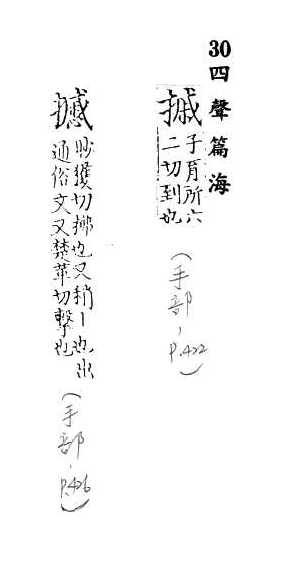 30四聲篇海
摵子育所六
二切到也
(手部,
P.422)
摵
沙獲切拂也又稍丨也出
通俗文又楚革切擊也
(手部,
P.426)